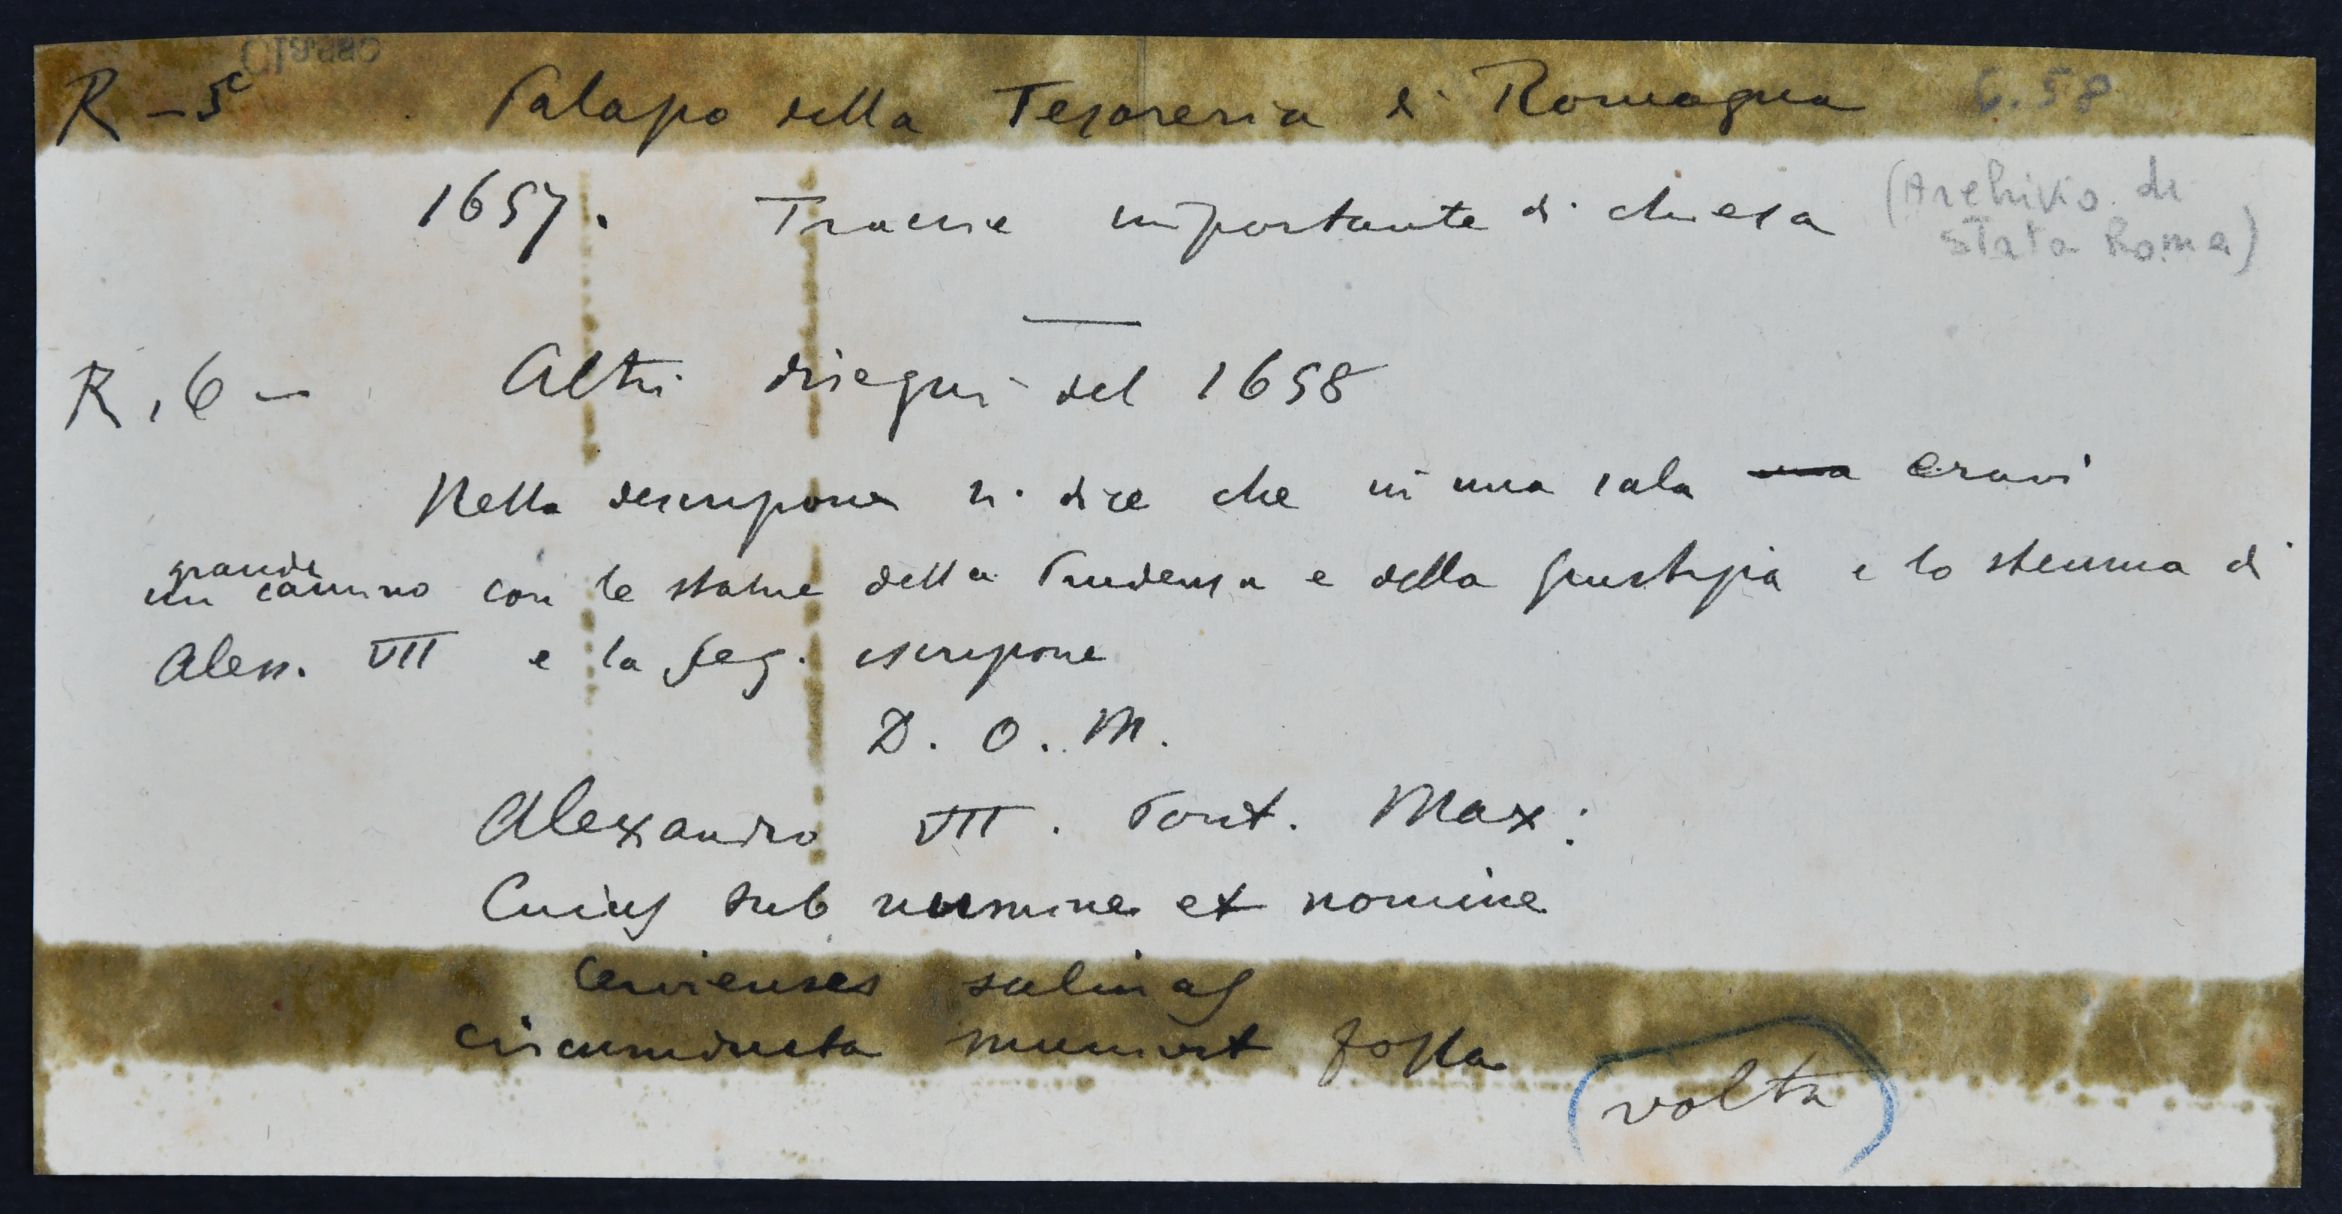 R - 5 Palazzo della Tesoreria di Romagna 6.58
1657. Traccie importante di chiesa (Archivio di
Stato Roma)
R. 6 - Altri disegni del 1658
Nella descrizione si dice che in una sala eravi
grande
un camino con le statue della Prudenza e della Giustizia e lo stemma di
Aless. VII e la seg. iscrizione
D. O. M.
Alexandro VII. Pont. Max:
Cuius sub numine et nomine
Cervienses salinas
circumducta munivit fossa
volta